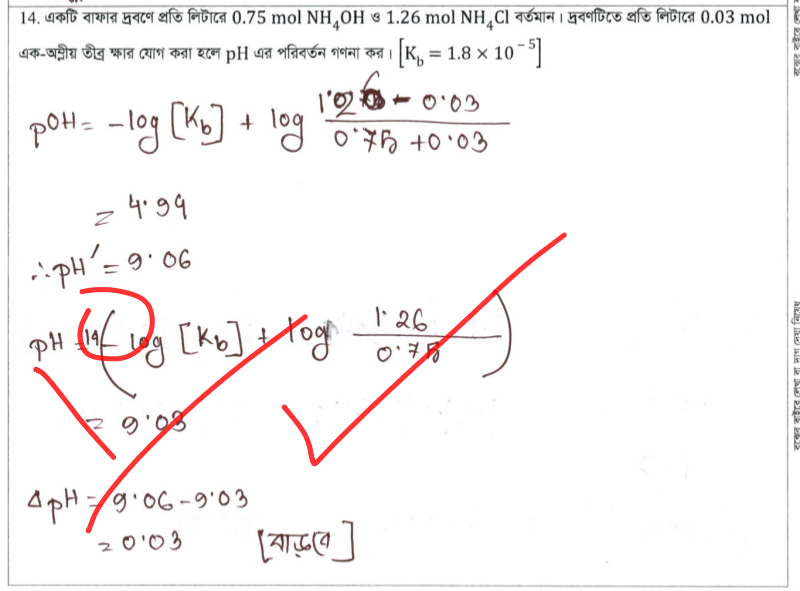 14. একটি বাফার দ্রবণে প্রতি লিটারে 0.75 mol NH₄OH ও 1.26 mol NH₄Cl বর্তমান। দ্রবণটিতে প্রতি লিটারে 0.03 mol
এক-অম্লীয় তীব্র ক্ষার যোগ করা হলে pH এর পরিবর্তন গণনা কর। [K_b = 1.8 × 10⁻⁵]
pOH = -log [Kb] + log (1.26 - 0.03)/(0.75 + 0.03)
= 4.94
∴ pH′ = 9.06
pH = 14 - ( log [Kb] + log 1.26/0.75 )
= 9.03
ΔpH = 9.06 - 9.03
= 0.03 [বাড়বে]